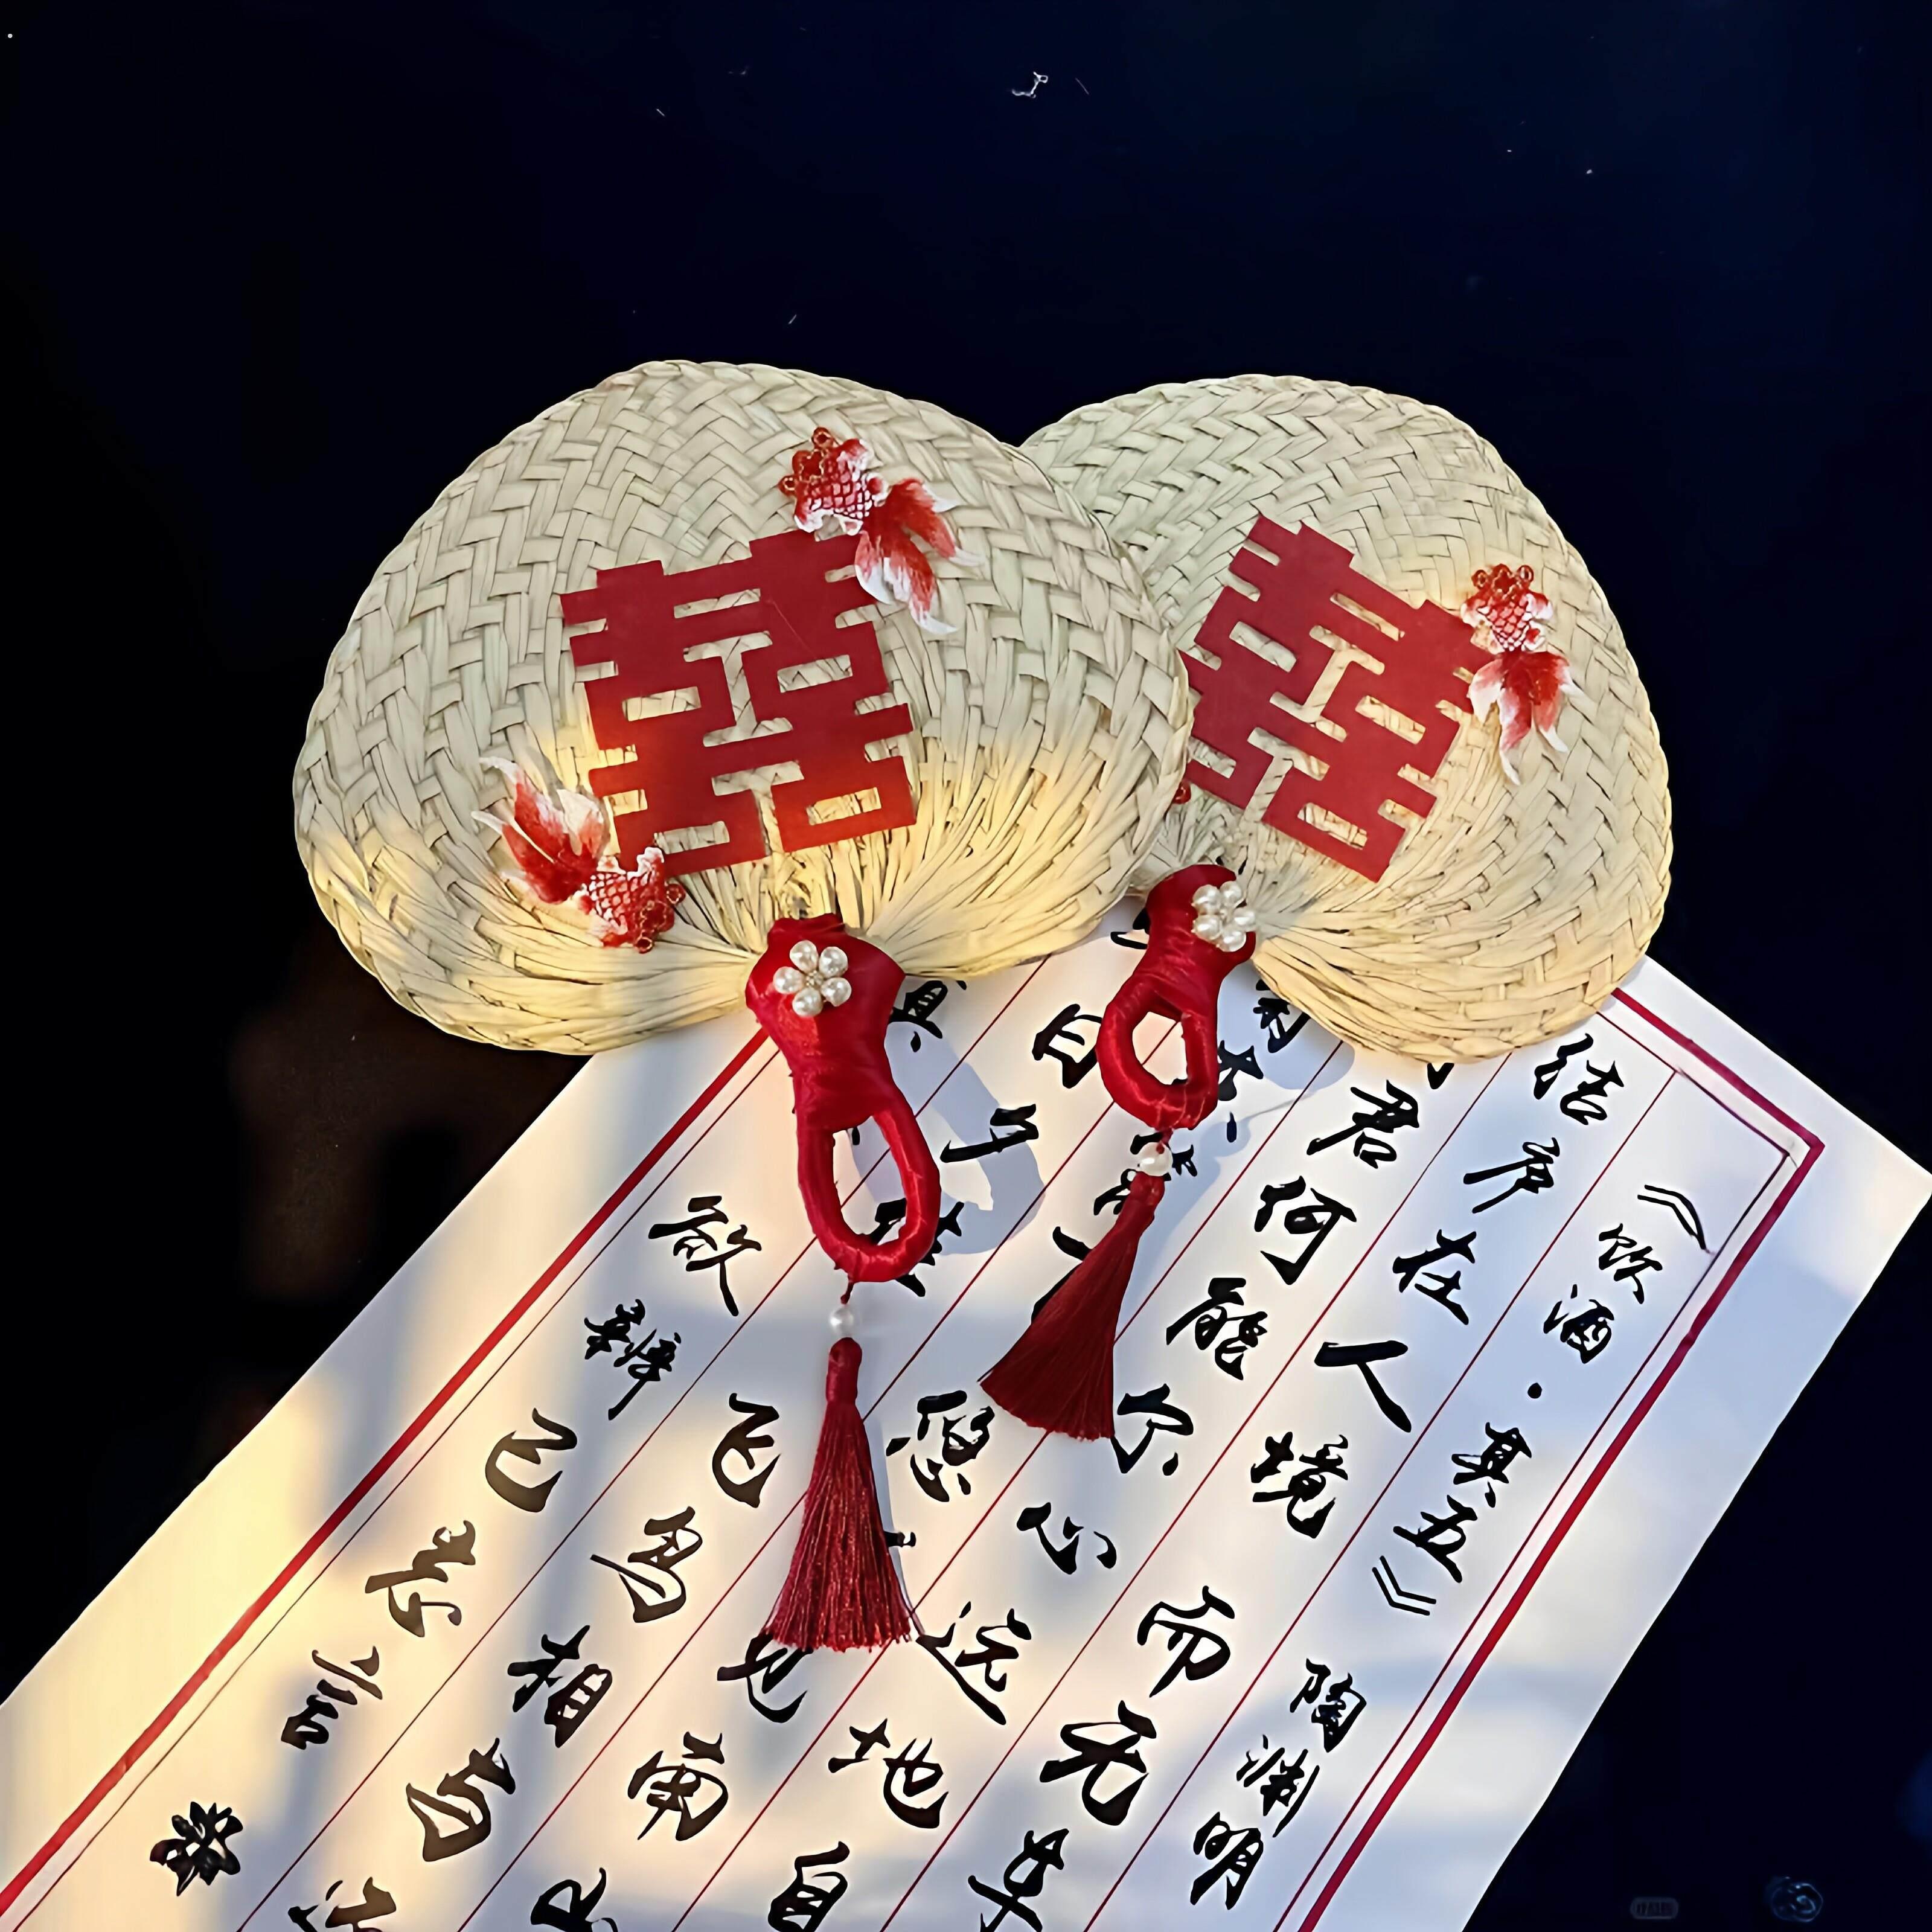 囍
囍
《饮酒·其五》 陶渊明
结庐在人境 而无车
君何能尔 心远地自
菊东篱下 悠 见南
日夕佳 飞鸟相与还
真 欲辨已忘言